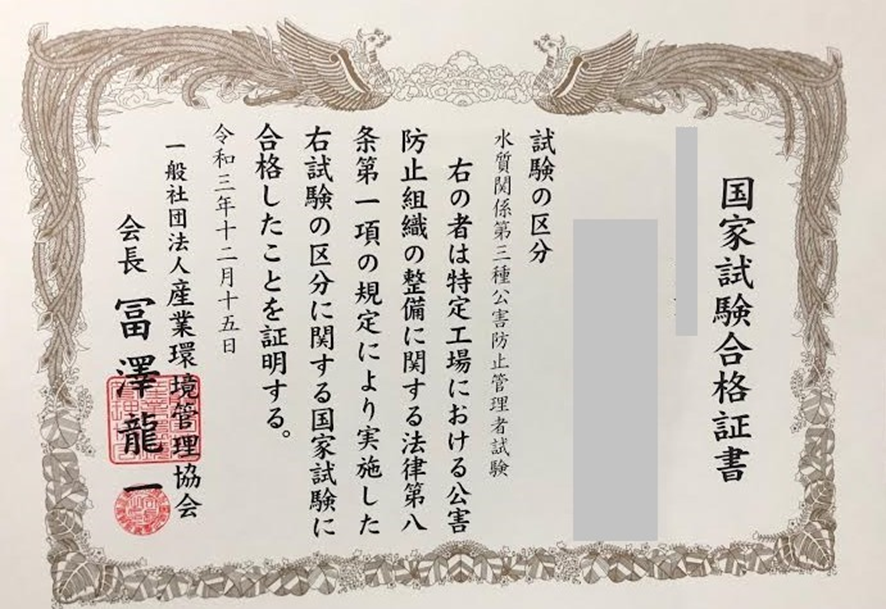 国家試験合格証書
試験の区分
水質関係第三種公害防止管理者試験
右の者は特定工場における公害
防止組織の整備に関する法律第八
条第一項の規定により実施した
右試験の区分に関する国家試験に
合格したことを証明する。
令和三年十二月十五日
一般社団法人産業環境管理協会
会長 冨澤龍一